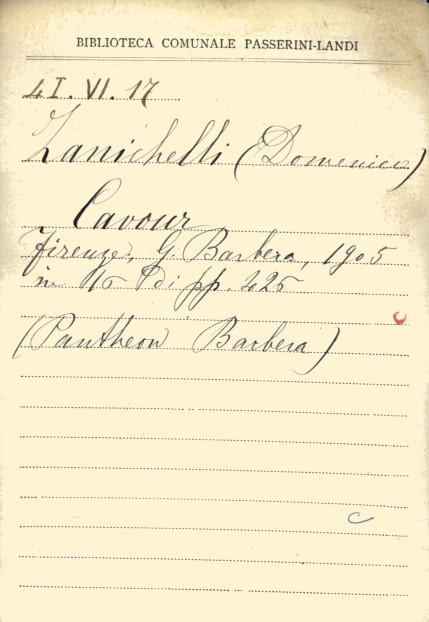 BIBLIOTECA COMUNALE PASSERINI-LANDI
4 I. VI. 17
Zanichelli (Domenico)
Cavour
Firenze, G. Barbera, 1905
in 16 di pp. 425
(Pantheon Barbera)
C
C